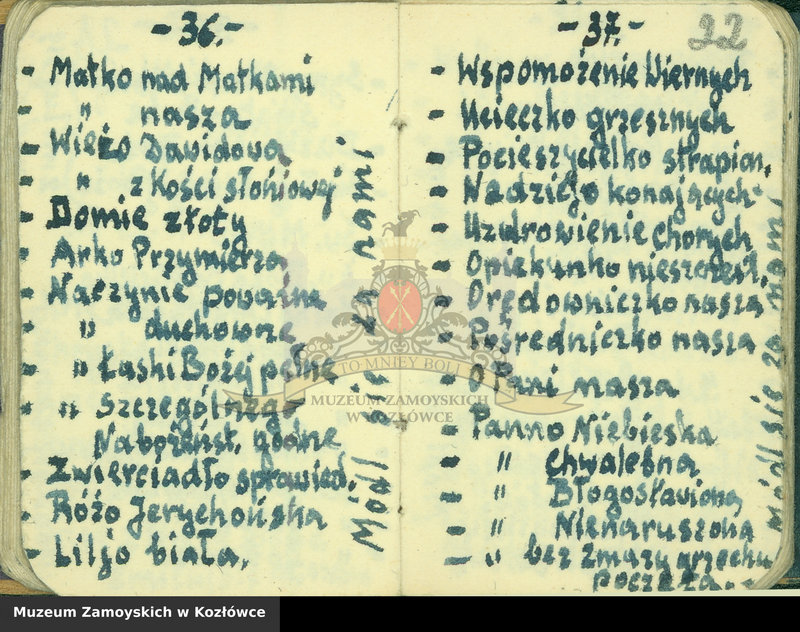 - 36. -
- Matko nad Matkami
- " nasza
- Wieżo Dawidowa
- " z Kości słoniowej
- Domie złoty
- Arko Przymierza
- Naczynie poważne
- " duchowne
- " Łaski Bożej pełne
- " szczególnego
Nabożeńst. godne
- Zwierciadło sprawied.
- Różo Jerychońska
- Liljo biała.
Módl się za nami
- 37. -
22
- Wspomożenie Wiernych
- Ucieczko grzesznych
- Pocieszycielko strapion.
- Nadziejo konających
- Uzdrowienie chorych
- Opiekunko nieszczęśl.
- Orędowniczko nasza
- Pośredniczko nasza
- O Pani nasza
- Panno Niebieska
- " Chwalebna
- " Błogosławiona
- " Nienaruszona
- " bez zmazy grzechu
poczęta. -
Módl się za nami
TO MNIEY BOLI
MUZEUM ZAMOYSKICH
W KOZŁÓWCE
Muzeum Zamoyskich w Kozłówce